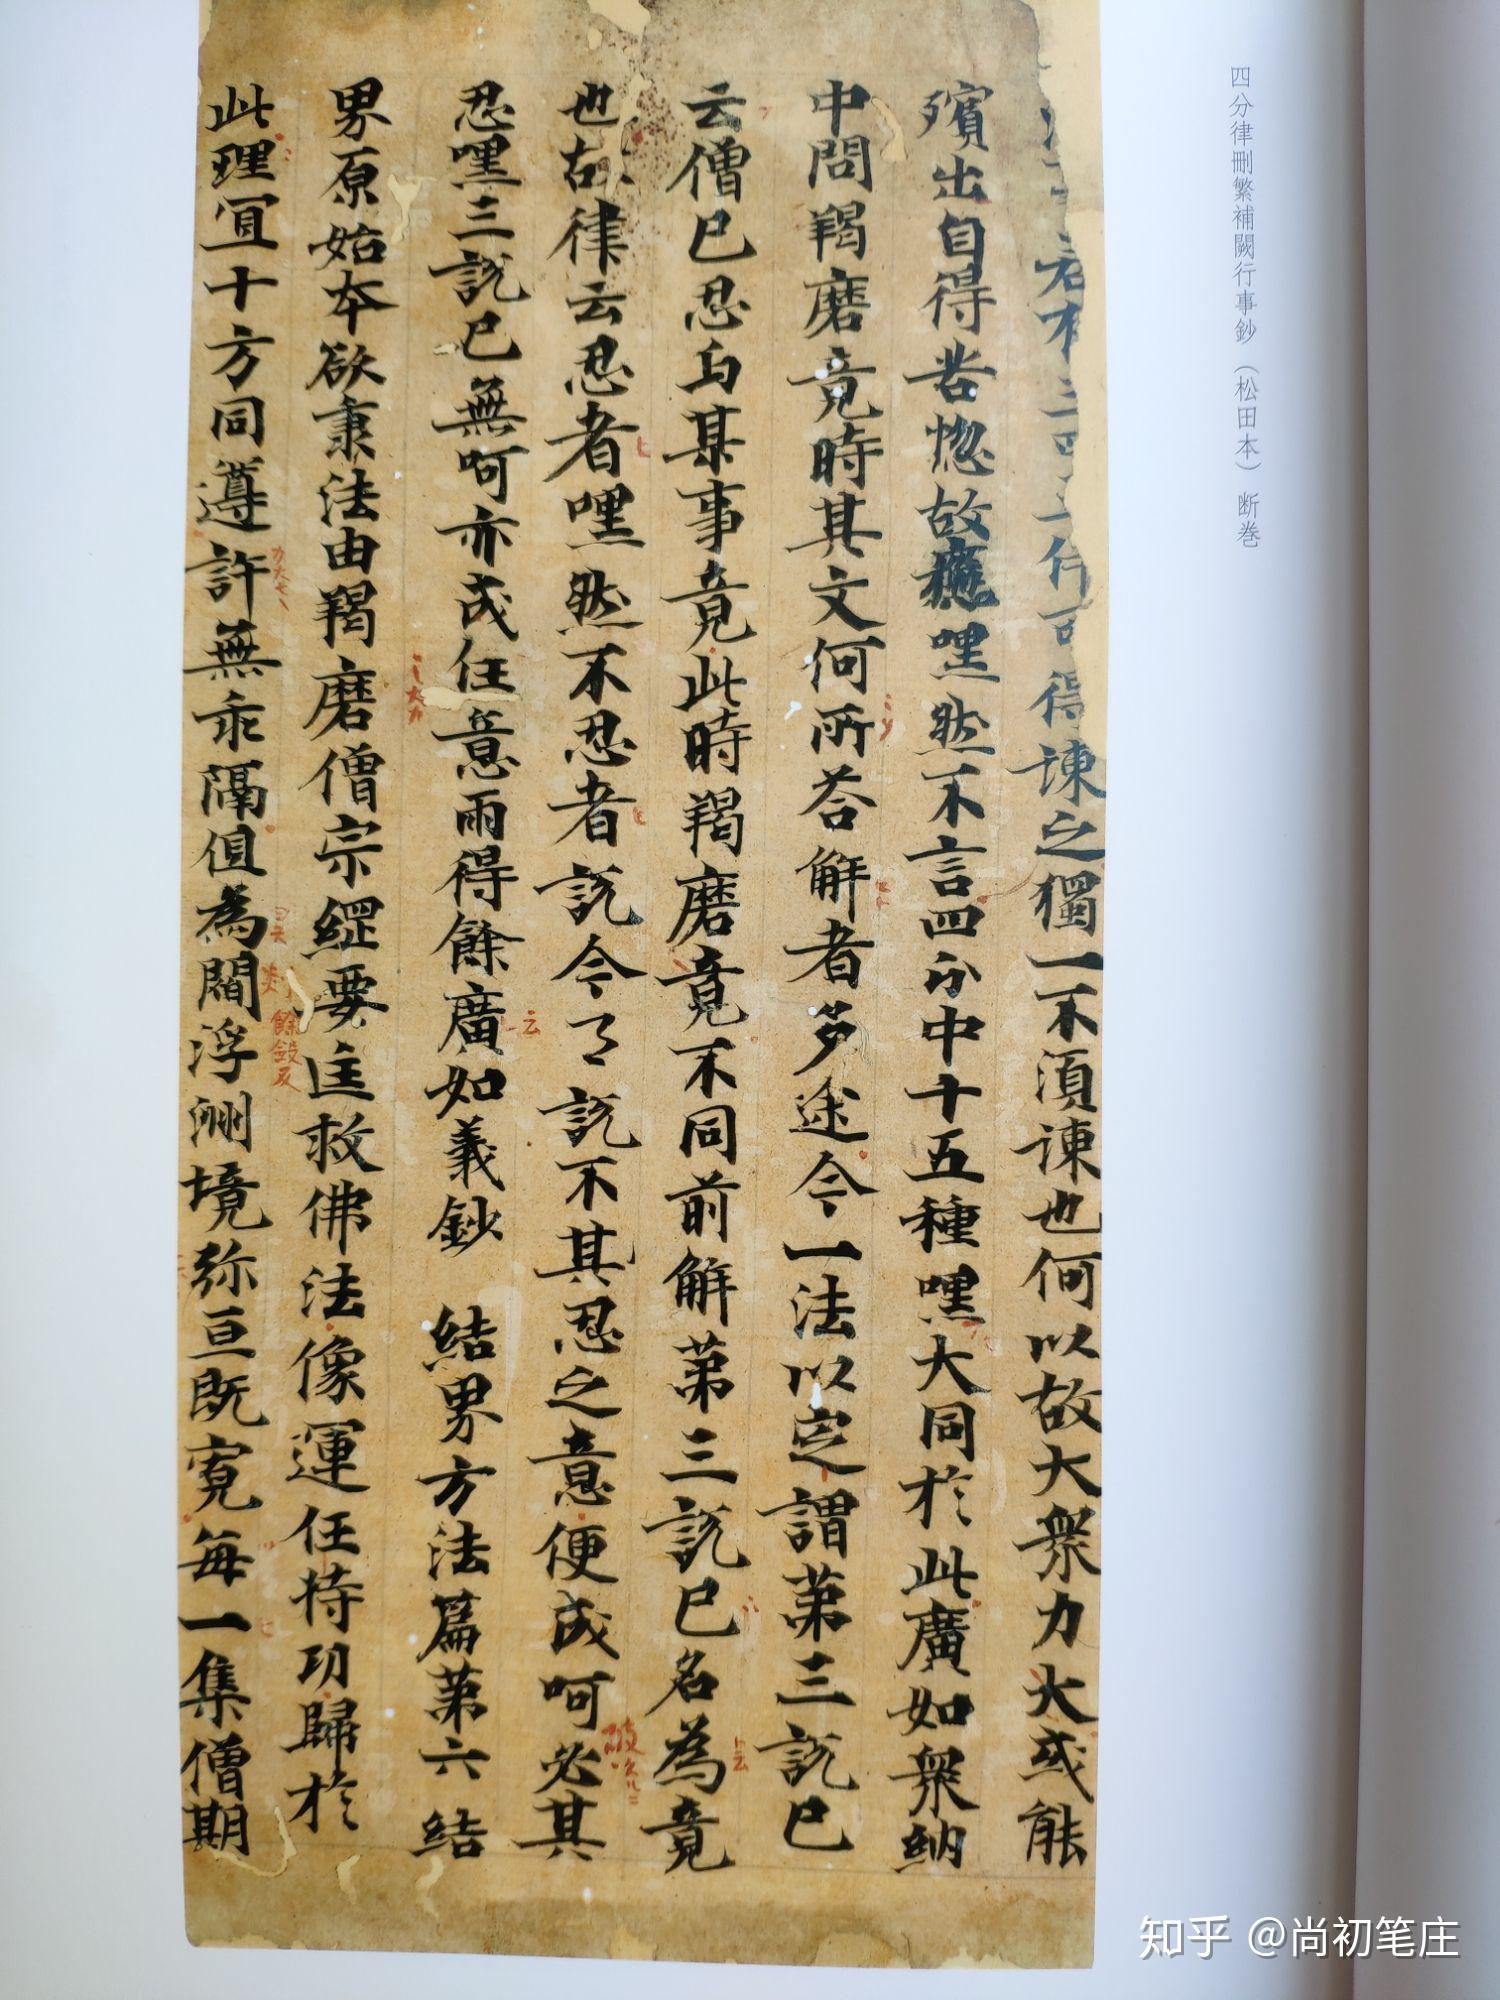 四分律刪繁補闕行事鈔（松田本）断巻
者有三四五人可得諫之獨一不須諫也何以故大衆力大或能
殯出自得苦惱故應嘿然不言四分中十五種嘿大同於此廣如衆網
中問羯磨竟時其文何所荅解者多途今一法以定謂第三說已
云僧已忍与某事竟此時羯磨竟不同前解第三說已名為竟
也故律云忍者嘿然不忍者說今了說不其忍之意便成呵必其
忍嘿三說已無呵亦成任意兩得餘廣如義鈔　結界方法篇第六 結
界原始本欲秉法由羯磨僧宗綱要匡救佛法像運任持功歸於
此理宜十方同遵許無乖隔但為閻浮洲境弥亘既寬每一集僧期
知乎 @尚初笔庄